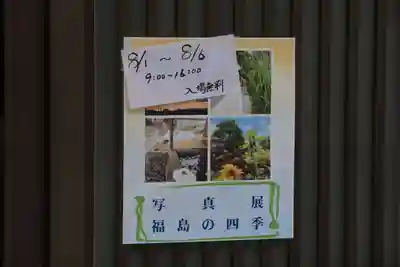 8/1 ~ 8/6
9:00-16:00
入場無料
写真展
福島の四季